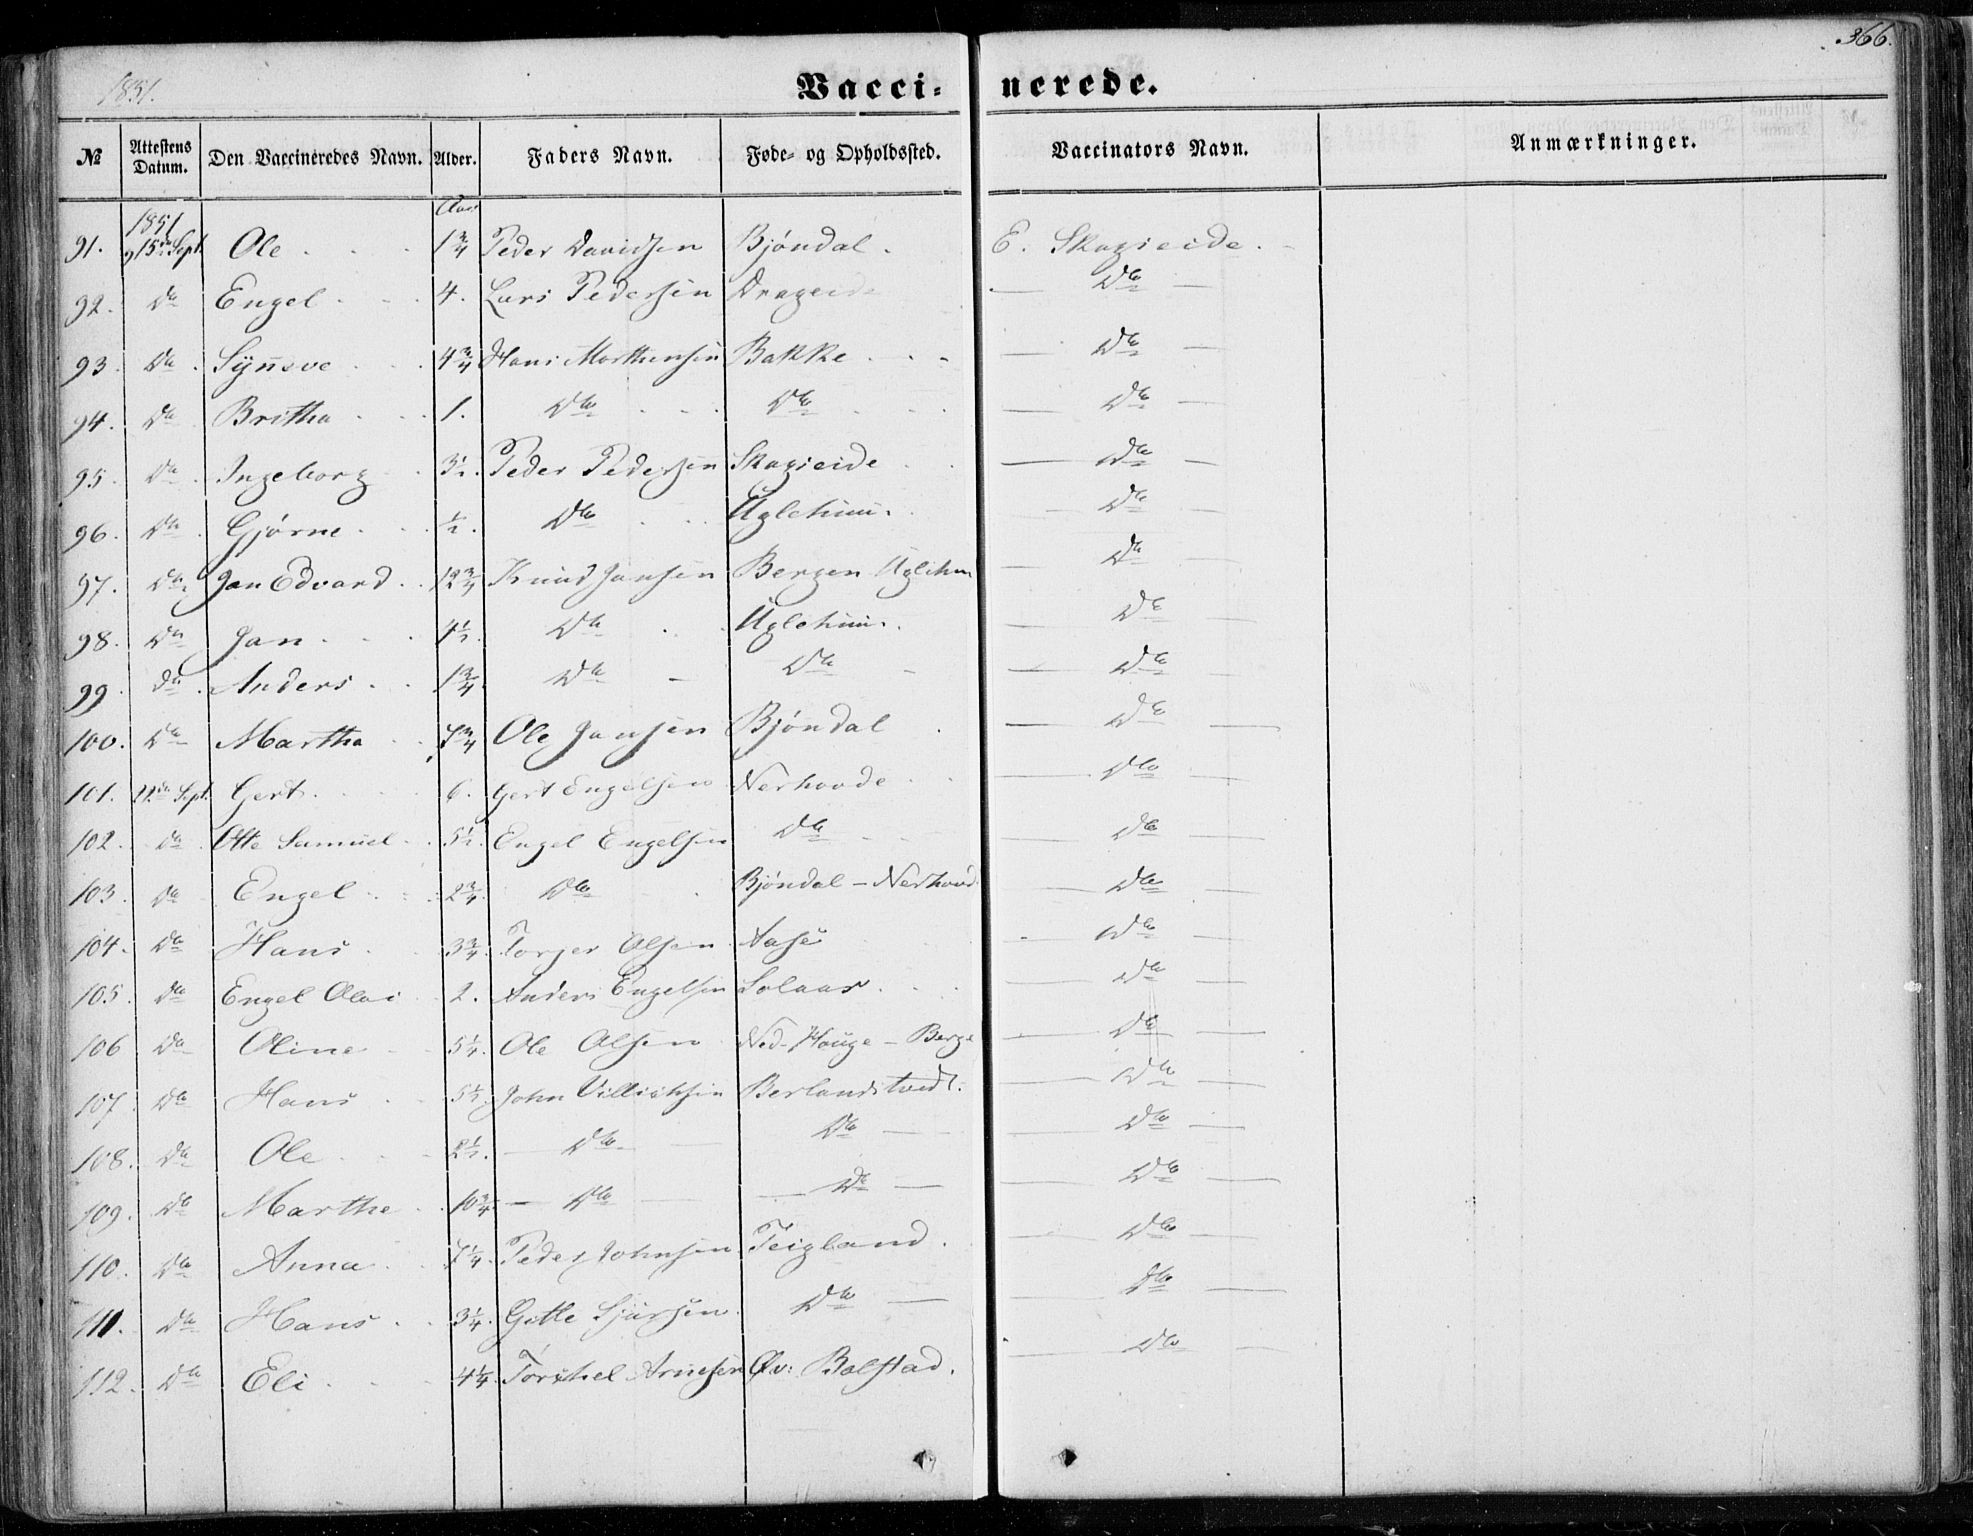 366.
1851.
Vacci- nerede.
№ | Attestens Datum. | Den Vaccineredes Navn. | Alder. | Faders Navn. | Føde- og Opholdssted. | Vaccinators Navn. | Anmærkninger.
1851 | Aar
91. | 15de Sept. | Ole | 1 3/4 | Peder Davidsen | Bjöndal. | E. Skagseide.
92. | Do | Engel | 4. | Lars Pedersen | Drageide | Do
93. | Do | Synneve | 4 3/4 | Hans Morthensen | Bakke | Do
94. | Do | Britha | 1. | Do | Do | Do
95. | Do | Ingeborg | 3 1/2. | Peder Pedersen | Skagseide | Do
96. | Do | Gjørne | 1/2. | Do | Uglehuus. | Do
97. | Do | Jan Edvard | 12 3/4 | Knud Jansen | Bergen Uglehuu | Do
98. | Do | Jan | 4 1/2. | Do | Uglehuus. | Do
99. | Do | Anders | 1 3/4 | Do | Do | Do
100. | Do | Martha | 7 3/4 | Ole Jansen | Bjöndal | Do
101. | 22de Sept. | Gert | 6. | Gert Engelsen | Nerhovde | Do
102. | Do | Otte Samuel | 5 1/2. | Engel Engelsen | Do | Do
103. | Do | Engel | 2 3/4. | Do | Bjöndal - Nerhovd | Do
104. | Do | Hans | 3 3/4. | Torger Olsen | Aase | Do
105. | Do | Engel Olai | 2. | Anders Engelsen | Solaas | Do
106 | Do | Oline | 5 1/4. | Ole Olsen | Ned-Houge - Berge | Do
107 | Do | Hans | 5 1/2. | John Villiksen | Berlandstvedt. | Do
108. | Do | Ole | 2 1/2. | Do | Do | Do
109. | Do | Marthe | 10 3/4 | Do | Do | Do
110. | Do | Anna | 7 1/4. | Peder Johnsen | Teigland. | Do
111. | Do | Hans | 3 1/4. | Gitle Sjursen | Do | Do
112. | Do | Eli | 4 1/4. | Torkel Arnesen | Öv: Bolstad. | Do